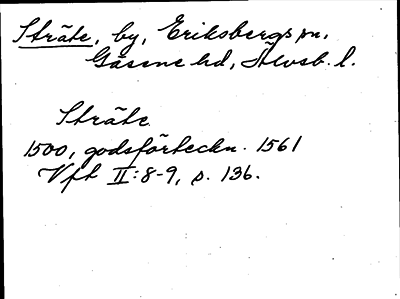 Stråte, by, Eriksbergs sn,
Gäsene hd, Älvsb. l.
Stråte
1500, godsförteckn. 1561
Vft II:8-9, p. 136.